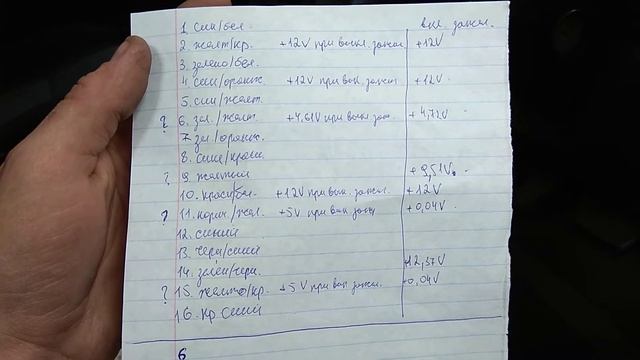 вкл. зажиг.
1 син/бел.
2. желт/кр. +12V при выкл. зажиг +12V
3. зелено/бел.
4. син/оранж +12V при вык. зажиг +12V
5. син/желт.
? 6. зел./желт. +4,61V при вык заж. +4,72V
7 зел/оранж.
8. сине/красн
? 9. желтый +9,51V.
10. красн/бел. +12V при вык. зажиг. +12V
? 11. корич./жел. +5V при вык зажиг +0,04V
12. синий
13. черн/синий
14. зелен/черн. +12,37V
? 15. желто/кр. +5V при вык зажиг. +0,04V
16. кр синий
6